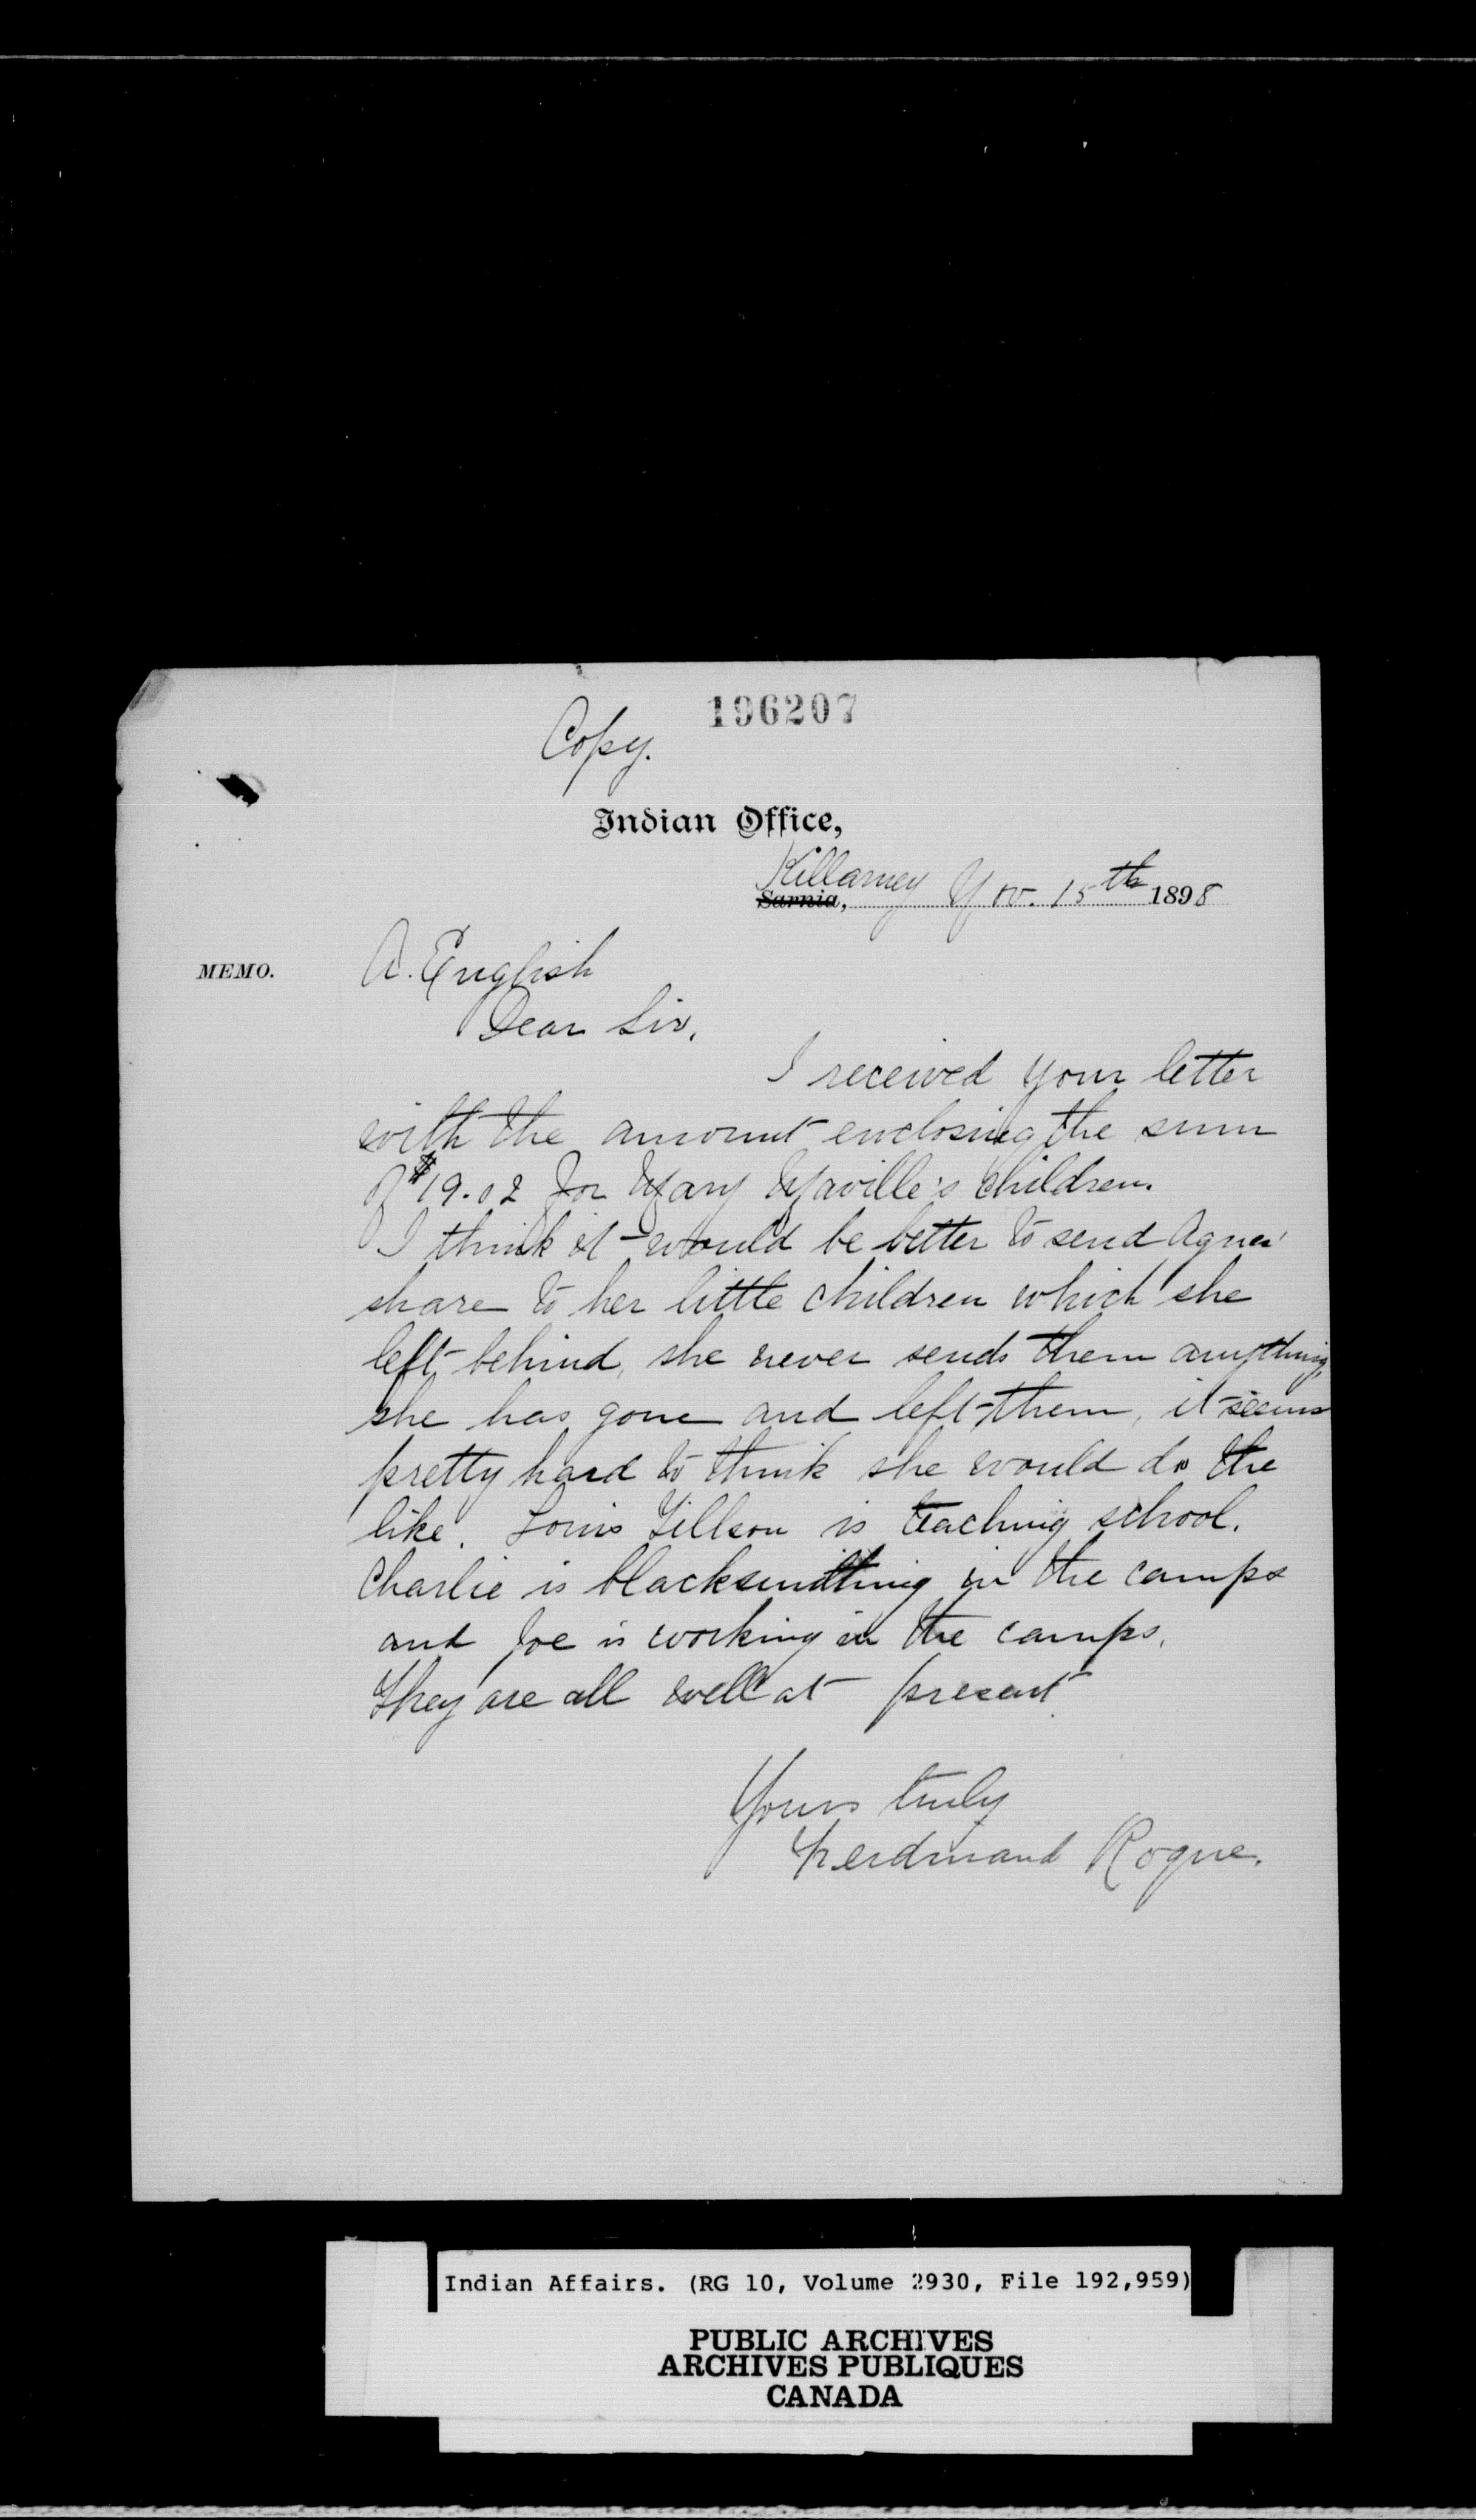 196207
Copy.
Indian Office,
Killarney Nov. 15th 1898
Sarnia,
MEMO.
A. English
Dear Sir,
I received your letter
with the amount enclosing the sum
of $19.02 for Mary Naville's children.
I think it would be better to send Agnes'
share to her little children which she
left behind, she never sends them anything,
she has gone and left them, it seems
pretty hard to think she would do the
like. Louis Tillson is teaching school.
Charlie is blacksmithing in the camps
and Joe is working in the camps.
They are all well at present
Yours truly
Ferdinand Roque.
Indian Affairs. (RG 10, Volume 2930, File 192,959)
PUBLIC ARCHIVES
ARCHIVES PUBLIQUES
CANADA